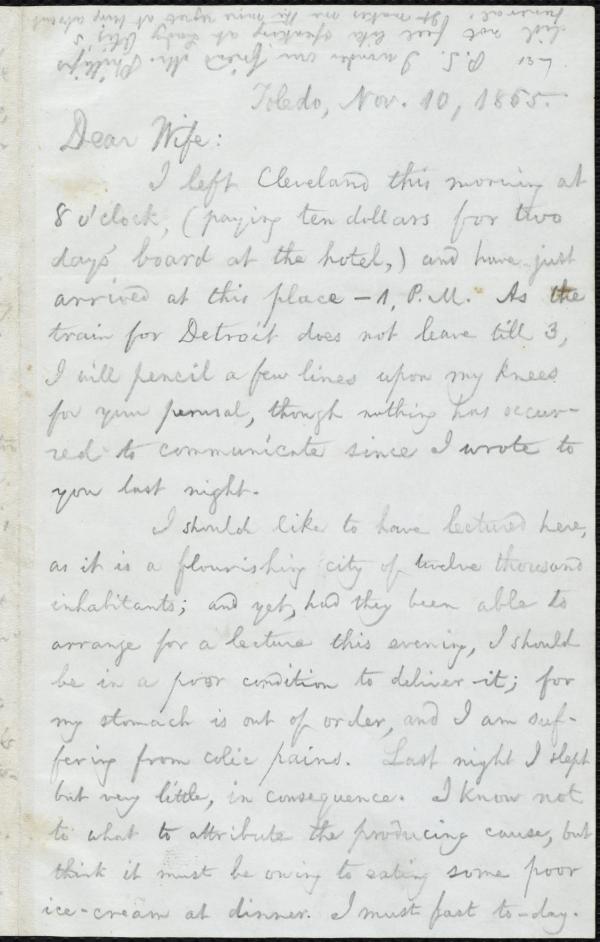 Toledo, Nov. 10, 1865.
Dear Wife:
I left Cleveland this morning at
8 o'clock, (paying ten dollars for two
days' board at the hotel,) and have just
arrived at this place – 1, P.M. As the
train for Detroit does not leave till 3,
I will pencil a few lines upon my knees
for your perusal, though nothing has occur-
red to communicate since I wrote to
you last night.
I should like to have lectured here,
as it is a flourishing city of twelve thousand
inhabitants; and yet, had they been able to
arrange for a lecture this evening, I should
be in a poor condition to deliver it; for
my stomach is out of order, and I am suf-
fering from colic pains. Last night I slept
but very little, in consequence. I know not
to what to attribute the producing cause, but
think it must be owing to eating some poor
ice-cream at dinner. I must fast to-day.
P.S. I wonder our friend Mr. Phillips
did not feel like speaking at Lady
funeral. It makes me the more regret at my absence.